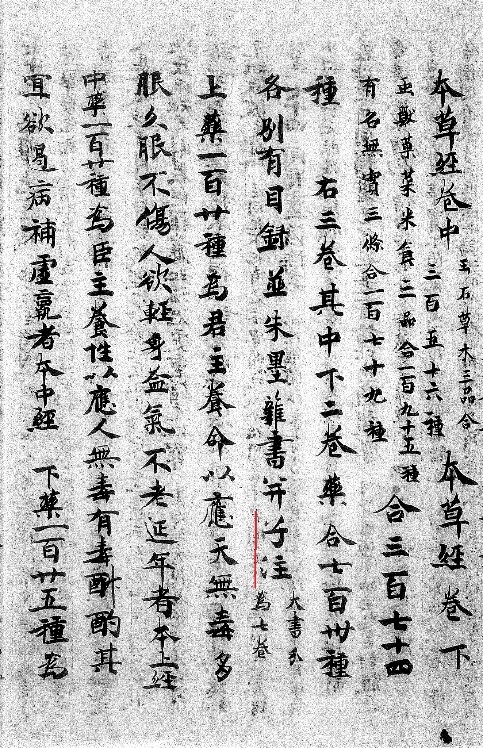 本草經卷中 玉石草木三品合三百五十六種 本草經卷下
虫獸菓菜米食三品合一百九十五種有名無實三條合一百七十九種 合三百七十四
種 右三卷其中下二卷藥合七百卅種
各別有目錄並朱墨雜書并子注 大書分為七卷
上藥一百廿種為君主養命以應天無毒多
服久服不傷人欲輕身益氣不老延年者本上經
中藥一百廿種為臣主養性以應人無毒有毒斟酌其
宜欲遏病補虛羸者本中經 下藥一百廿五種為